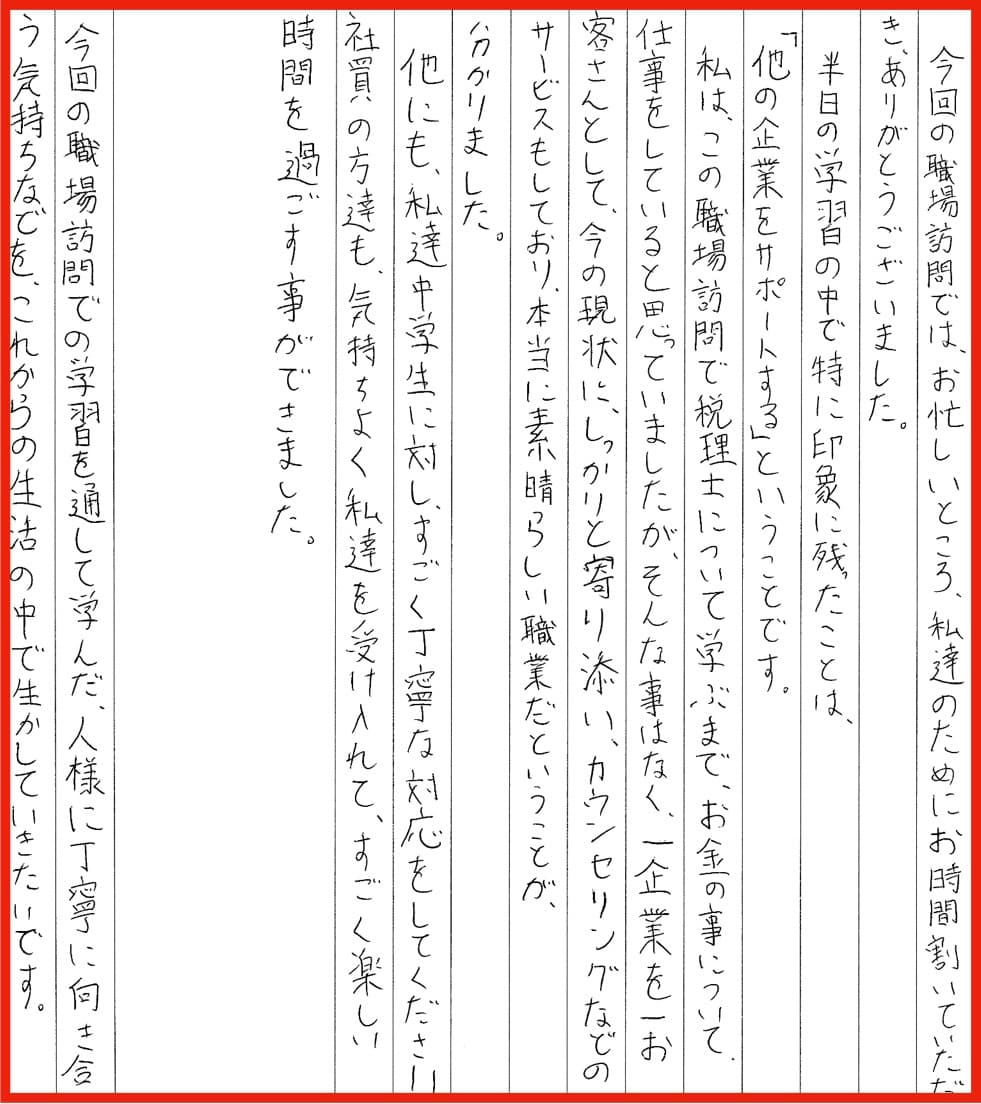 今回の職場訪問では、お忙しいところ、私達のためにお時間割いていただ
き、ありがとうございました。
半日の学習の中で特に印象に残ったことは、
「他の企業をサポートする」ということです。
私は、この職場訪問で税理士について学ぶまで、お金の事について、
仕事をしていると思っていましたが、そんな事はなく、一企業を一お
客さんとして、今の現状に、しっかりと寄り添い、カウンセリングなどの
サービスもしており、本当に素晴らしい職業だということが、
分かりました。
他にも、私達中学生に対し、すごく丁寧な対応をしてくださり
社買の方達も、気持ちよく私達を受け入れて、すごく楽しい
時間を過ごす事ができました。
今回の職場訪問での学習を通して学んだ、人様に丁寧に向き合
う気持ちなどを、これからの生活の中で生かしていきたいです。